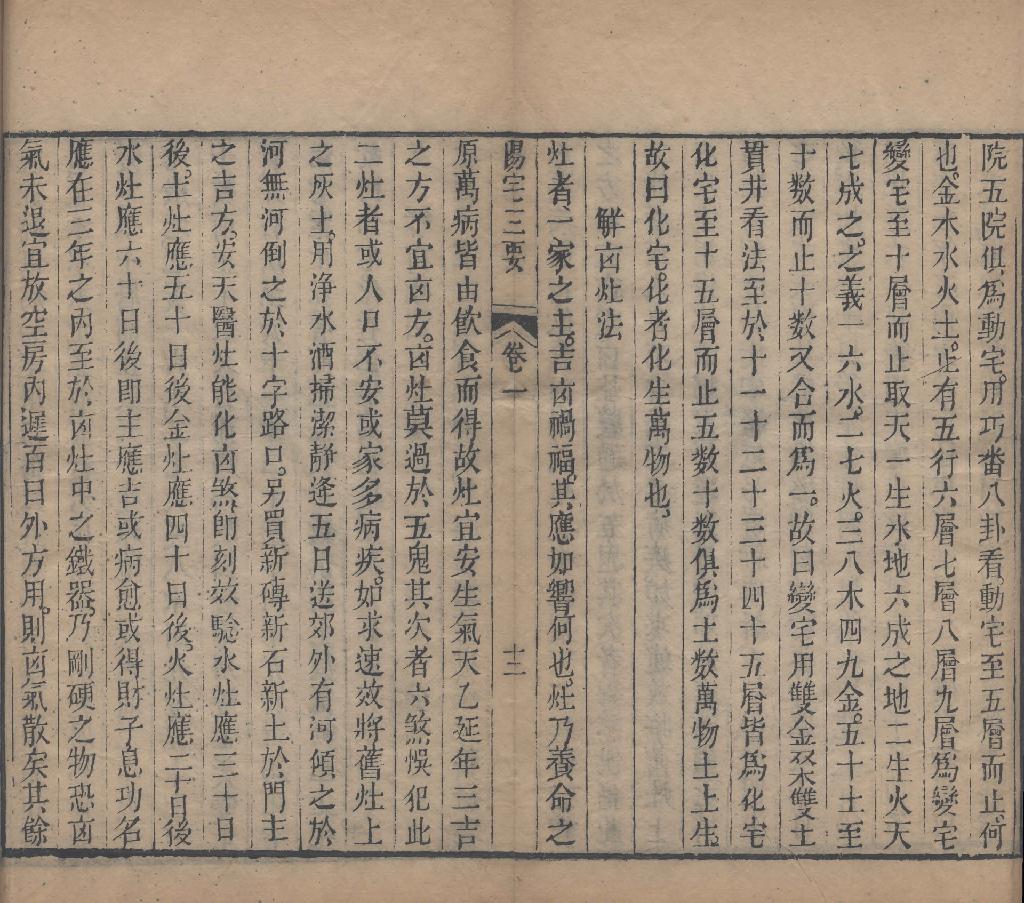 院五院俱爲動宅。用巧番八卦看。動宅至五層而止。何
也。金木水火土。止有五行六層七層八層九層爲變宅
變宅至十層而止取天一生水地六成之地二生火天
七成之。之義一六水。二七火。三八木四九金。五十土至
十数而止十数又合而爲一。故曰變宅用雙金双木雙土
貫井看法至於十一十二十三十四十五層皆爲化宅
化宅至十五層而止五数十数俱爲土数萬物土上生。
故曰化宅。化者化生萬物也。
解凶灶法
灶者、一家之主。吉凶禍福。其應如響何也。灶乃養命之
陽宅三要 卷一 十二
原萬病皆由飲食而得故灶宜安生氣天乙延年三吉
之方不宜凶方。凶灶莫過於五鬼其次者六煞悞犯此
二灶者或人口不安或家多病疾。如求速效將舊灶上
之灰土。用净水洒掃潔静逢五日送郊外有河傾之於
河無河倒之於十字路口。另買新磚新石新土於門主
之吉方。安天醫灶能化凶煞即刻效驗水灶應三十日
後。土灶應五十日後金灶應四十日後。火灶應二十日後
水灶應六十日後即主應吉或病愈或得財子息功名
應在三年之内至於凶灶中之鐵器。乃剛硬之物恐凶
氣未退宜放空房内遲百日外方用。則凶氣散矣其餘